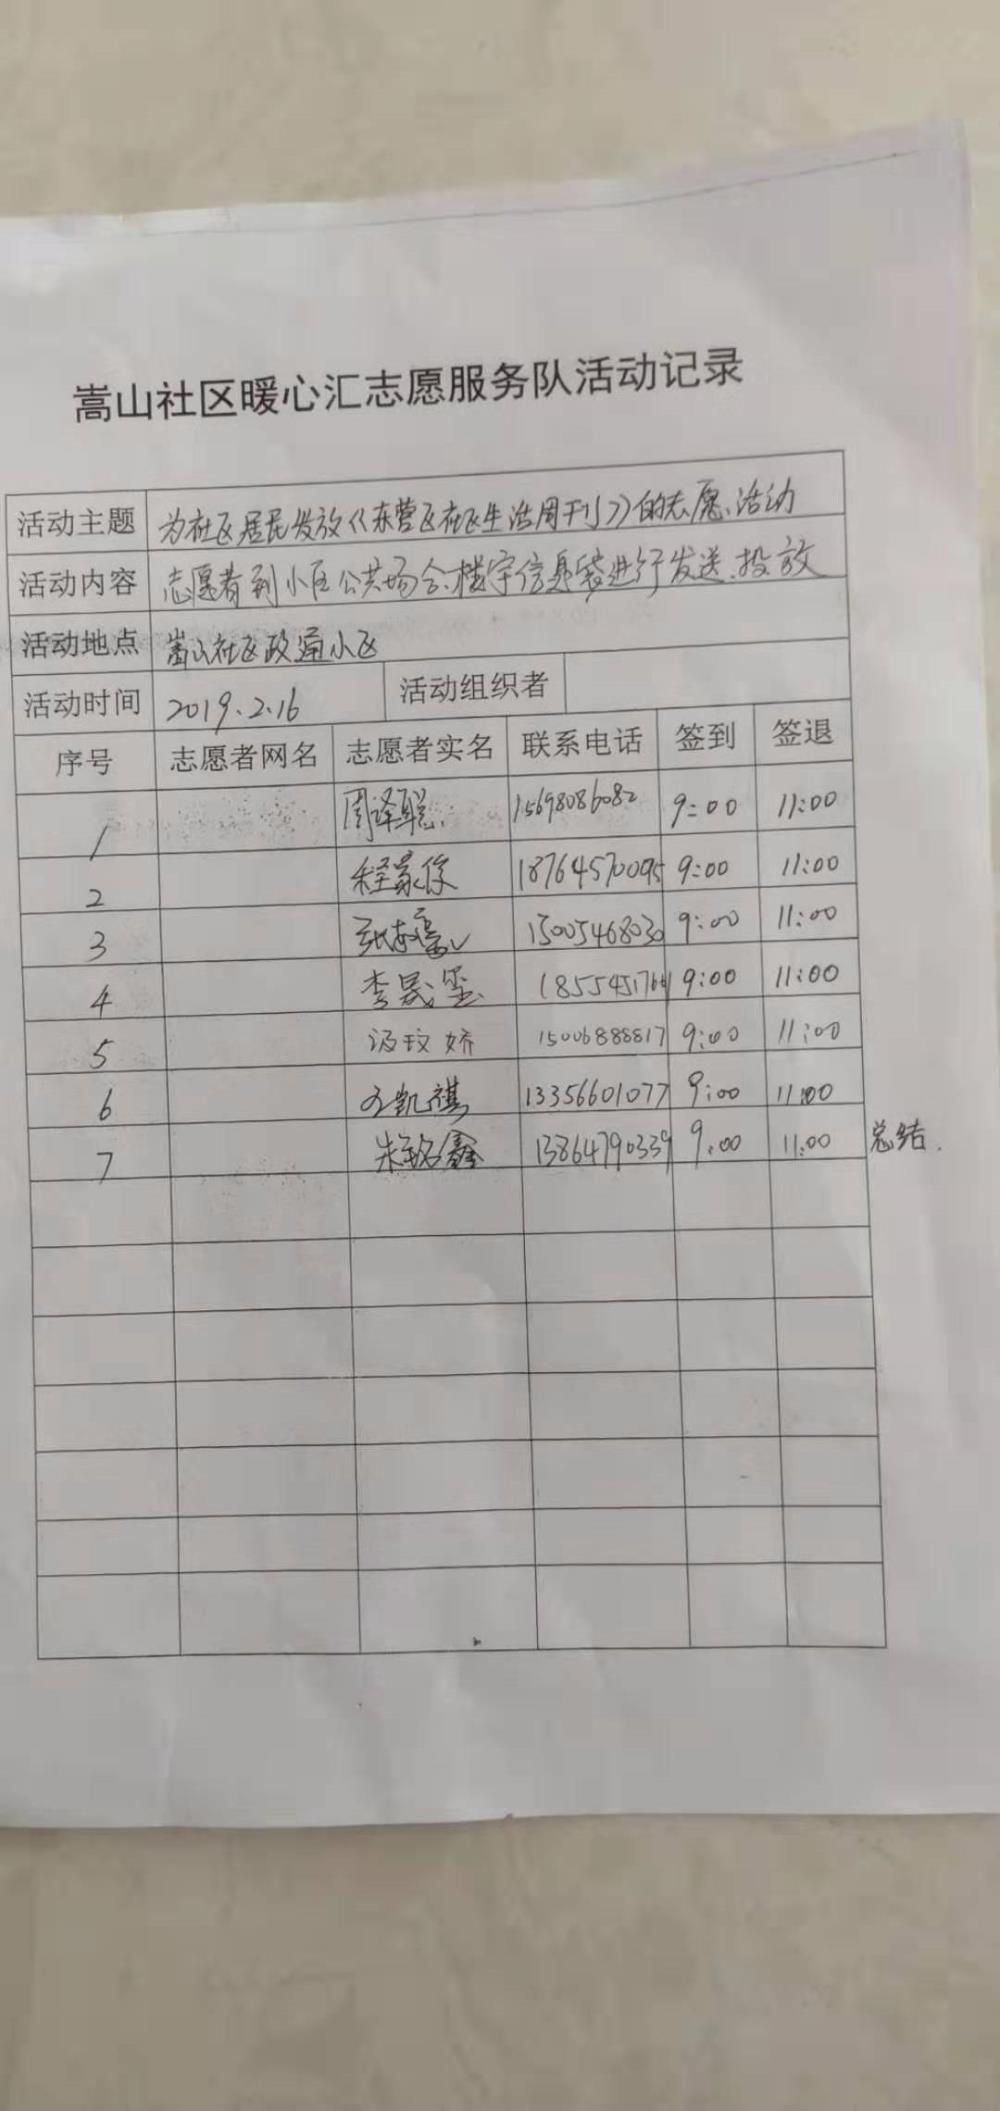 嵩山社区暖心汇志愿服务队活动记录
活动主题 为社区居民发放《东营区社区生活周刊》的志愿活动
活动内容 志愿者到小区公共场合.楼宇信息袋进行发送.投放
活动地点 嵩山社区政通小区
活动时间 2019.2.16 活动组织者
序号 志愿者网名 志愿者实名 联系电话 签到 签退
1 周泽聪 15698086082 9:00 11:00
2 程家俊 18764570095 9:00 11:00
3 15005468030 9:00 11:00
4 李晟玺 9:00 11:00
5 汤玟娇 15006888817 9:00 11:00
6 王凯祺 13356601077 9:00 11:00
7 朱铭鑫 13864790339 9:00 11:00 总结.